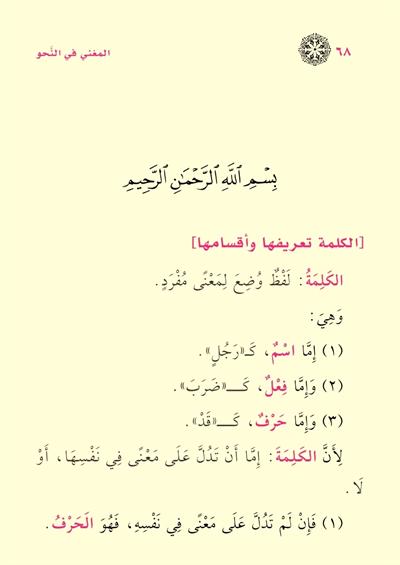 ٦٨ المغني في النَّحو
بِسْمِ ٱللَّهِ ٱلرَّحْمَٰنِ ٱلرَّحِيمِ
[الكلمة تعريفها وأقسامها]
الكَلِمَةُ: لَفْظٌ وُضِعَ لِمَعْنًى مُفْرَدٍ.
وَهِيَ:
(١) إِمَّا اسْمٌ، كَـ«رَجُلٍ».
(٢) وَإِمَّا فِعْلٌ، كَــ«ضَرَبَ».
(٣) وَإِمَّا حَرْفٌ، كَــ«قَدْ».
لِأَنَّ الكَلِمَةَ: إِمَّا أَنْ تَدُلَّ عَلَى مَعْنًى فِي نَفْسِهَا، أَوْ
لَا.
(١) فَإِنْ لَمْ تَدُلَّ عَلَى مَعْنًى فِي نَفْسِهِ، فَهُوَ الْحَرْفُ.